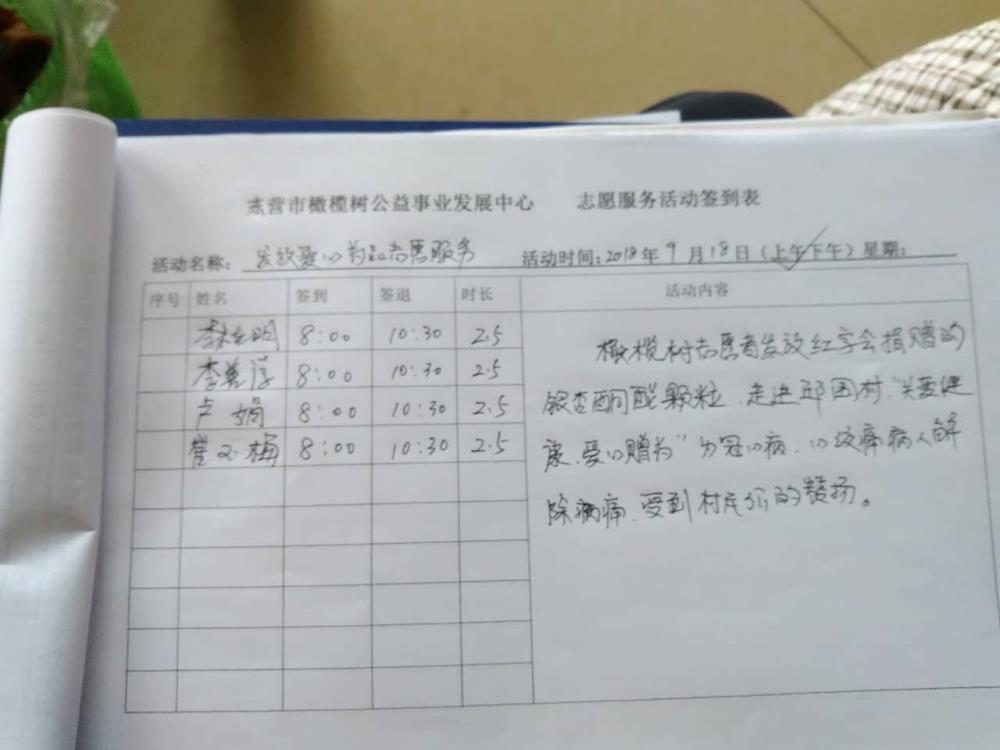 东营市橄榄树公益事业发展中心 志愿服务活动签到表
活动名称: 发放爱心药品志愿服务 活动时间: 2018年9月18日(上午✓下午)星期:
序号 姓名 签到 签退 时长 活动内容
李 明 8:00 10:30 2.5
李 8:00 10:30 2.5
卢娟 8:00 10:30 2.5
崔 梅 8:00 10:30 2.5
橄榄树志愿者发放红字会捐赠的
银杏酮酯颗粒.走进 村."关爱健
康.爱心赠药"为冠心病.心绞痛病人解
除病痛.受到村民们的赞扬。